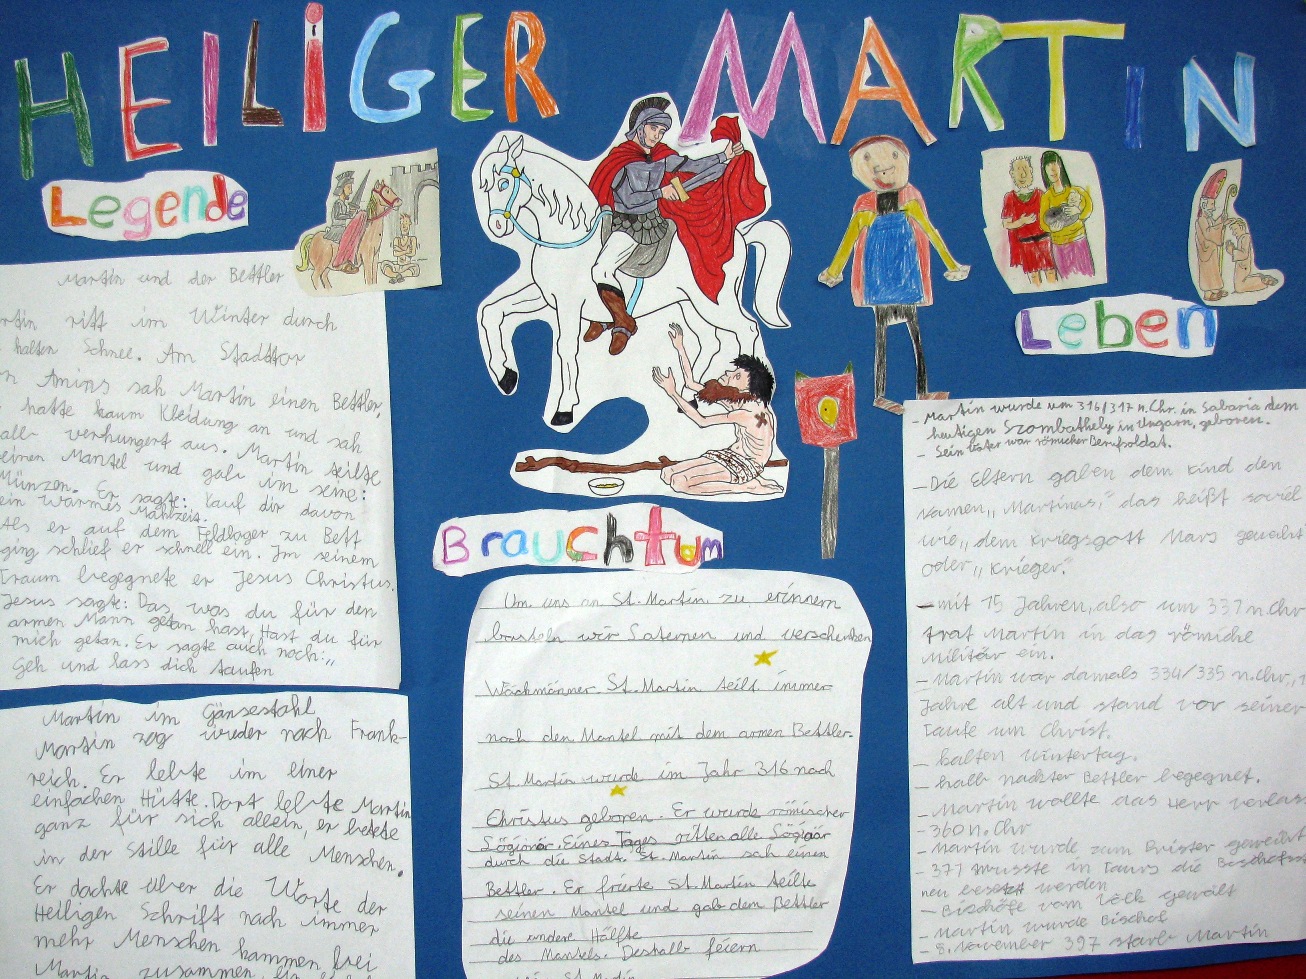 HEILIGER MARTIN
Legende
Martin und der Bettler
rtin ritt im Winter durch
halten Schnee. Am Stadttor
n Amins sah Martin einen Bettler,
hatte kaum Kleidung an und sah
alb verhungert aus. Martin teilte
seinen Mantel und gab im seine:
Münzen. Er sagte: Kauf dir davon
ein warmes Mahlzeit.
Als er auf dem Feldlager zu Bett
ging schlief er schnell ein. Im seinem
Traum begegnete er Jesus Christus.
Jesus sagte: Das, was du für den
armen Mann getan hast, Hast du für
mich getan. Er sagte auch noch: „
Geh und lass dich taufen
Martin im Gänsestahl
Martin zog wieder nach Frank-
reich. Er lebte im einer
einfachen Hütte. Dort lebte Martin
ganz für sich allein, er betete
in der Stille für alle Menschen.
Er dachte über die Worte der
Heiligen Schrift nach immer
mehr Menschen kammen bei
Martin zusammen
Brauchtum
Um uns an St. Martin zu erinnern
basteln wir Laternen und verschenken
Wäckmänner. St. Martin teilt immer
noch den Mantel mit dem armen Bettler.
St. Martin wurde im Jahr 316 nach
Christus geboren. Er wurde römischer
Eines Tages ritten alle
durch die Stadt. St. Martin sah einen
Bettler. Er frierte St. Martin teilte
seinen Mantel und gab dem Bettler
die andere Hälfte
des Mantels. Deshalb feiern
wir St. Martin
Leben
- Martin wurde um 316/317 n. Chr. in Sabaria dem
heutigen Szombathely in Ungarn, geboren.
- Sein Vater war römicher Berufsoldat.
- Die Eltern gaben dem Kind den
Namen „Martinus," das heißt soviel
wie „dem Kriegsgott Mars geweiht
oder „Krieger."
- mit 15 Jahren, also um 331 n. Chr
trat Martin in das römiche
Militär ein.
- Martin war damals 334/335 n. Chr.,
Jahre alt und stand vor seiner
Taufe um Christ.
- kalten Wintertag.
- halb nackter Bettler begegnet.
- Martin wollte das Herr verlas
- 360 n. Chr
- Martin wurde zum Prister geweiht
- 371 musste in Tours die Bischofss
neu besetzt werden
- Bischöfe vom Volk gewält
- Martin wurde Bischof
- 8. November 397 starb Martin